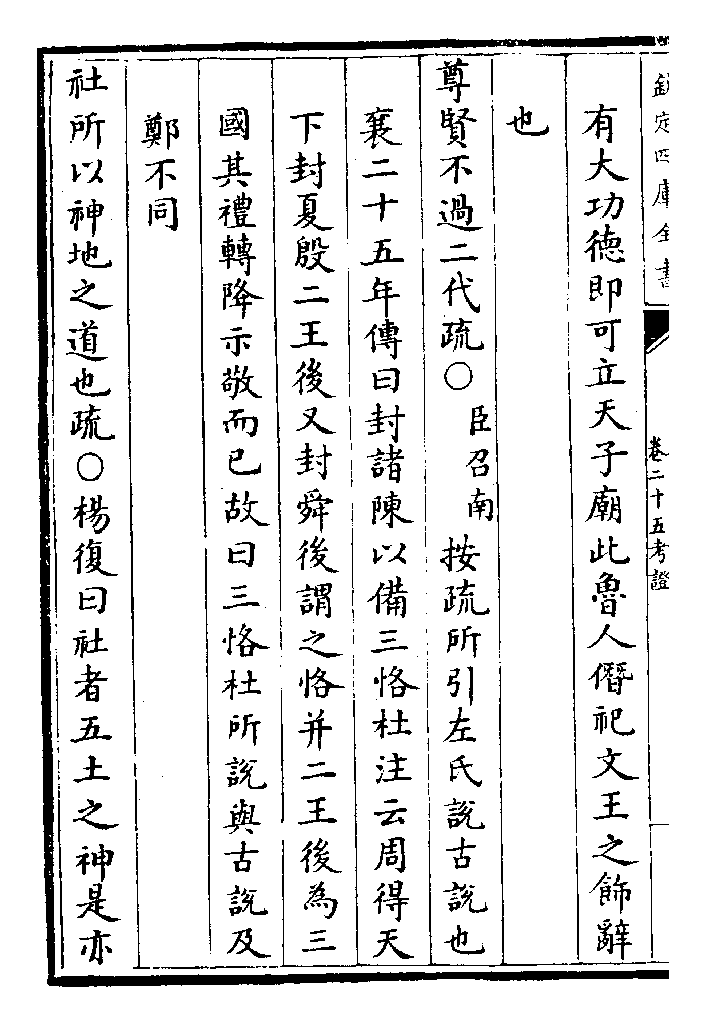 欽定四庫全書
卷二十五考證
有大功德即可立天子廟此魯人僭祀文王之飾辭
也
尊賢不過二代疏○臣召南按疏所引左氏説古説也
襄二十五年傳曰封諸陳以備三恪杜注云周得天
下封夏殷二王後又封舜後謂之恪并二王後為三
國其禮轉降示敬而已故曰三恪杜所說與古說及
鄭不同
社所以神地之道也疏○楊復曰社者五土之神是亦